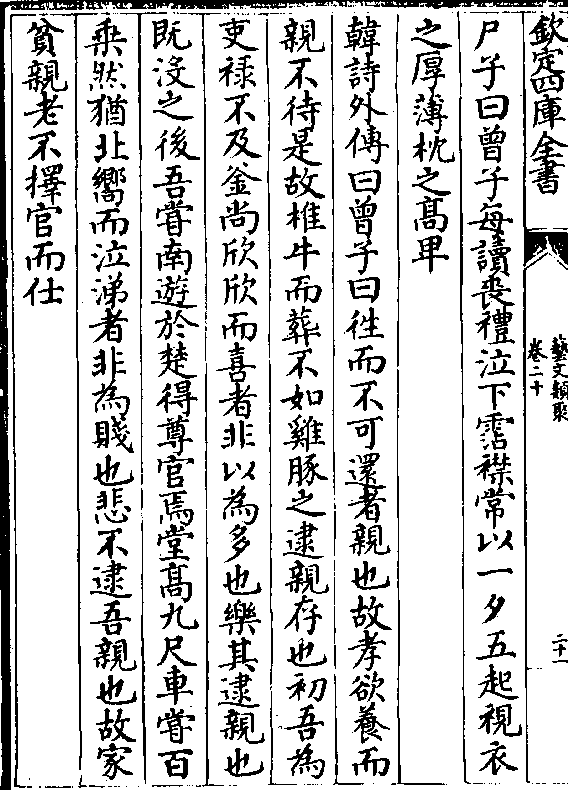 欽定四庫全書
藝文類聚
卷二十
二十一
尸子曰曾子每讀喪禮泣下霑襟常以一夕五起視衣
之厚薄枕之髙卑
韓詩外傳曰曾子曰徃而不可還者親也故孝欲養而
親不待是故椎牛而葬不如雞豚之逮親存也初吾為
吏祿不及釜尚欣欣而喜者非以為多也樂其逮親也
既沒之後吾嘗南遊於楚得尊官焉堂髙九尺車嘗百
乘然猶北嚮而泣涕者非為賤也悲不逮吾親也故家
貧親老不擇官而仕